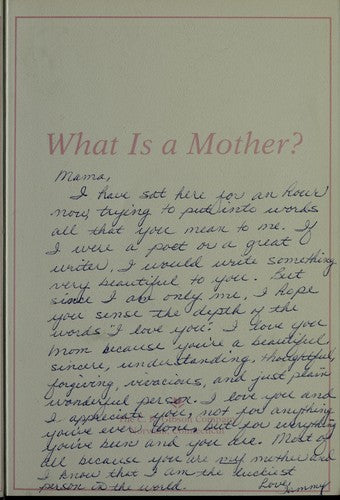 What Is a Mother?
Mama,
I have sat here for an hour
now, trying to put into words
all that you mean to me. If
I were a poet or a great
writer, I would write something
very beautiful to you. But
since I am only me, I hope
you sense the depth of the
words "I love you". I love you
Mom because you're a beautiful,
sincere, understanding, thoughtful,
forgiving, vivacious, and just plain
wonderful person. I love you and
I appreciate you, not for anything
you've ever done, but for everything
you've been and you are. Most of
all because you are my mother and
I know that I am the luckiest
person in the world. Love,